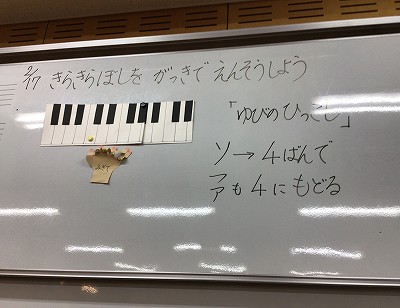 2/17 きらきらぼしを がっきで えんそうしよう
「ゆびのひっこし」
ソ→4ばんで
ファも4にもどる